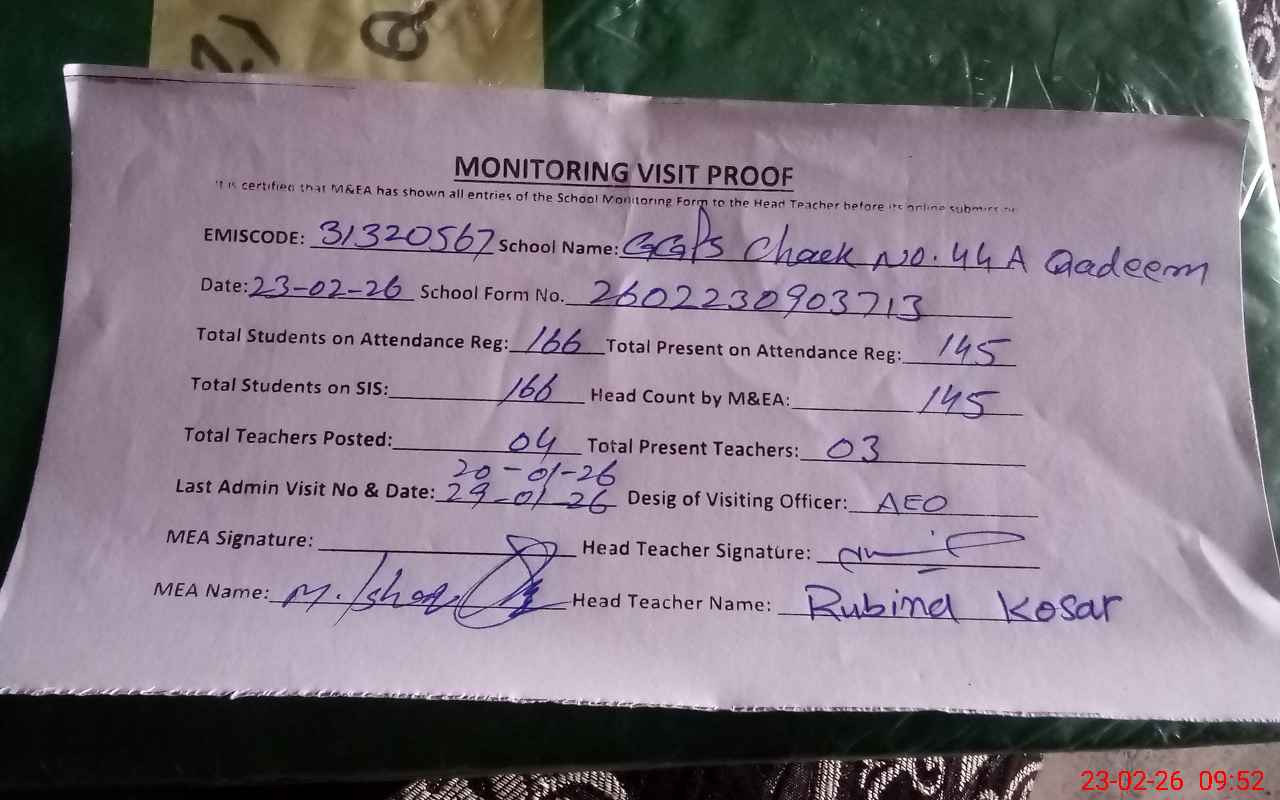 MONITORING VISIT PROOF
It is certified that M&EA has shown all entries of the School Monitoring Form to the Head Teacher before its online
EMISCODE: 31320567 School Name: GGPS Chack No. 44 A Qadeem
Date: 23-02-26 School Form No. 2602230903713
Total Students on Attendance Reg: 166 Total Present on Attendance Reg: 145
Total Students on SIS: 166 Head Count by M&EA: 145
Total Teachers Posted: 04 Total Present Teachers: 03
20-01-26
Last Admin Visit No & Date: 29-01-26 Desig of Visiting Officer: AEO
MEA Signature: Head Teacher Signature:
MEA Name: M. Ishaq Head Teacher Name: Rubina Kosar
23-02-26 09:52